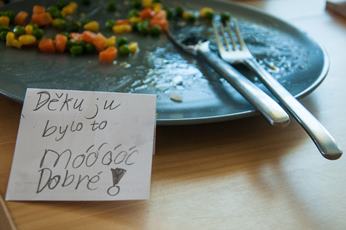 Děkuju
bylo to
móóóóc
Dobré!